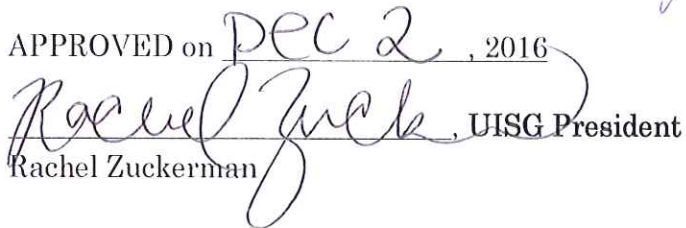 APPROVED on Dec 2, 2016
Rachel Zuck, UISG President
Rachel Zuckerman